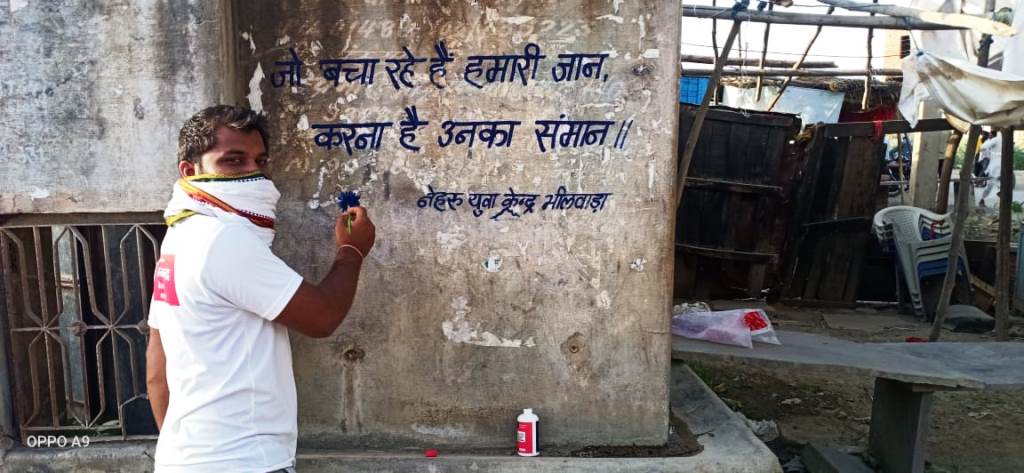 जो बचा रहे हैं हमारी जान,
करना है उनका संमान॥
नेहरू युवा केन्द्र भीलवाड़ा
OPPO A9